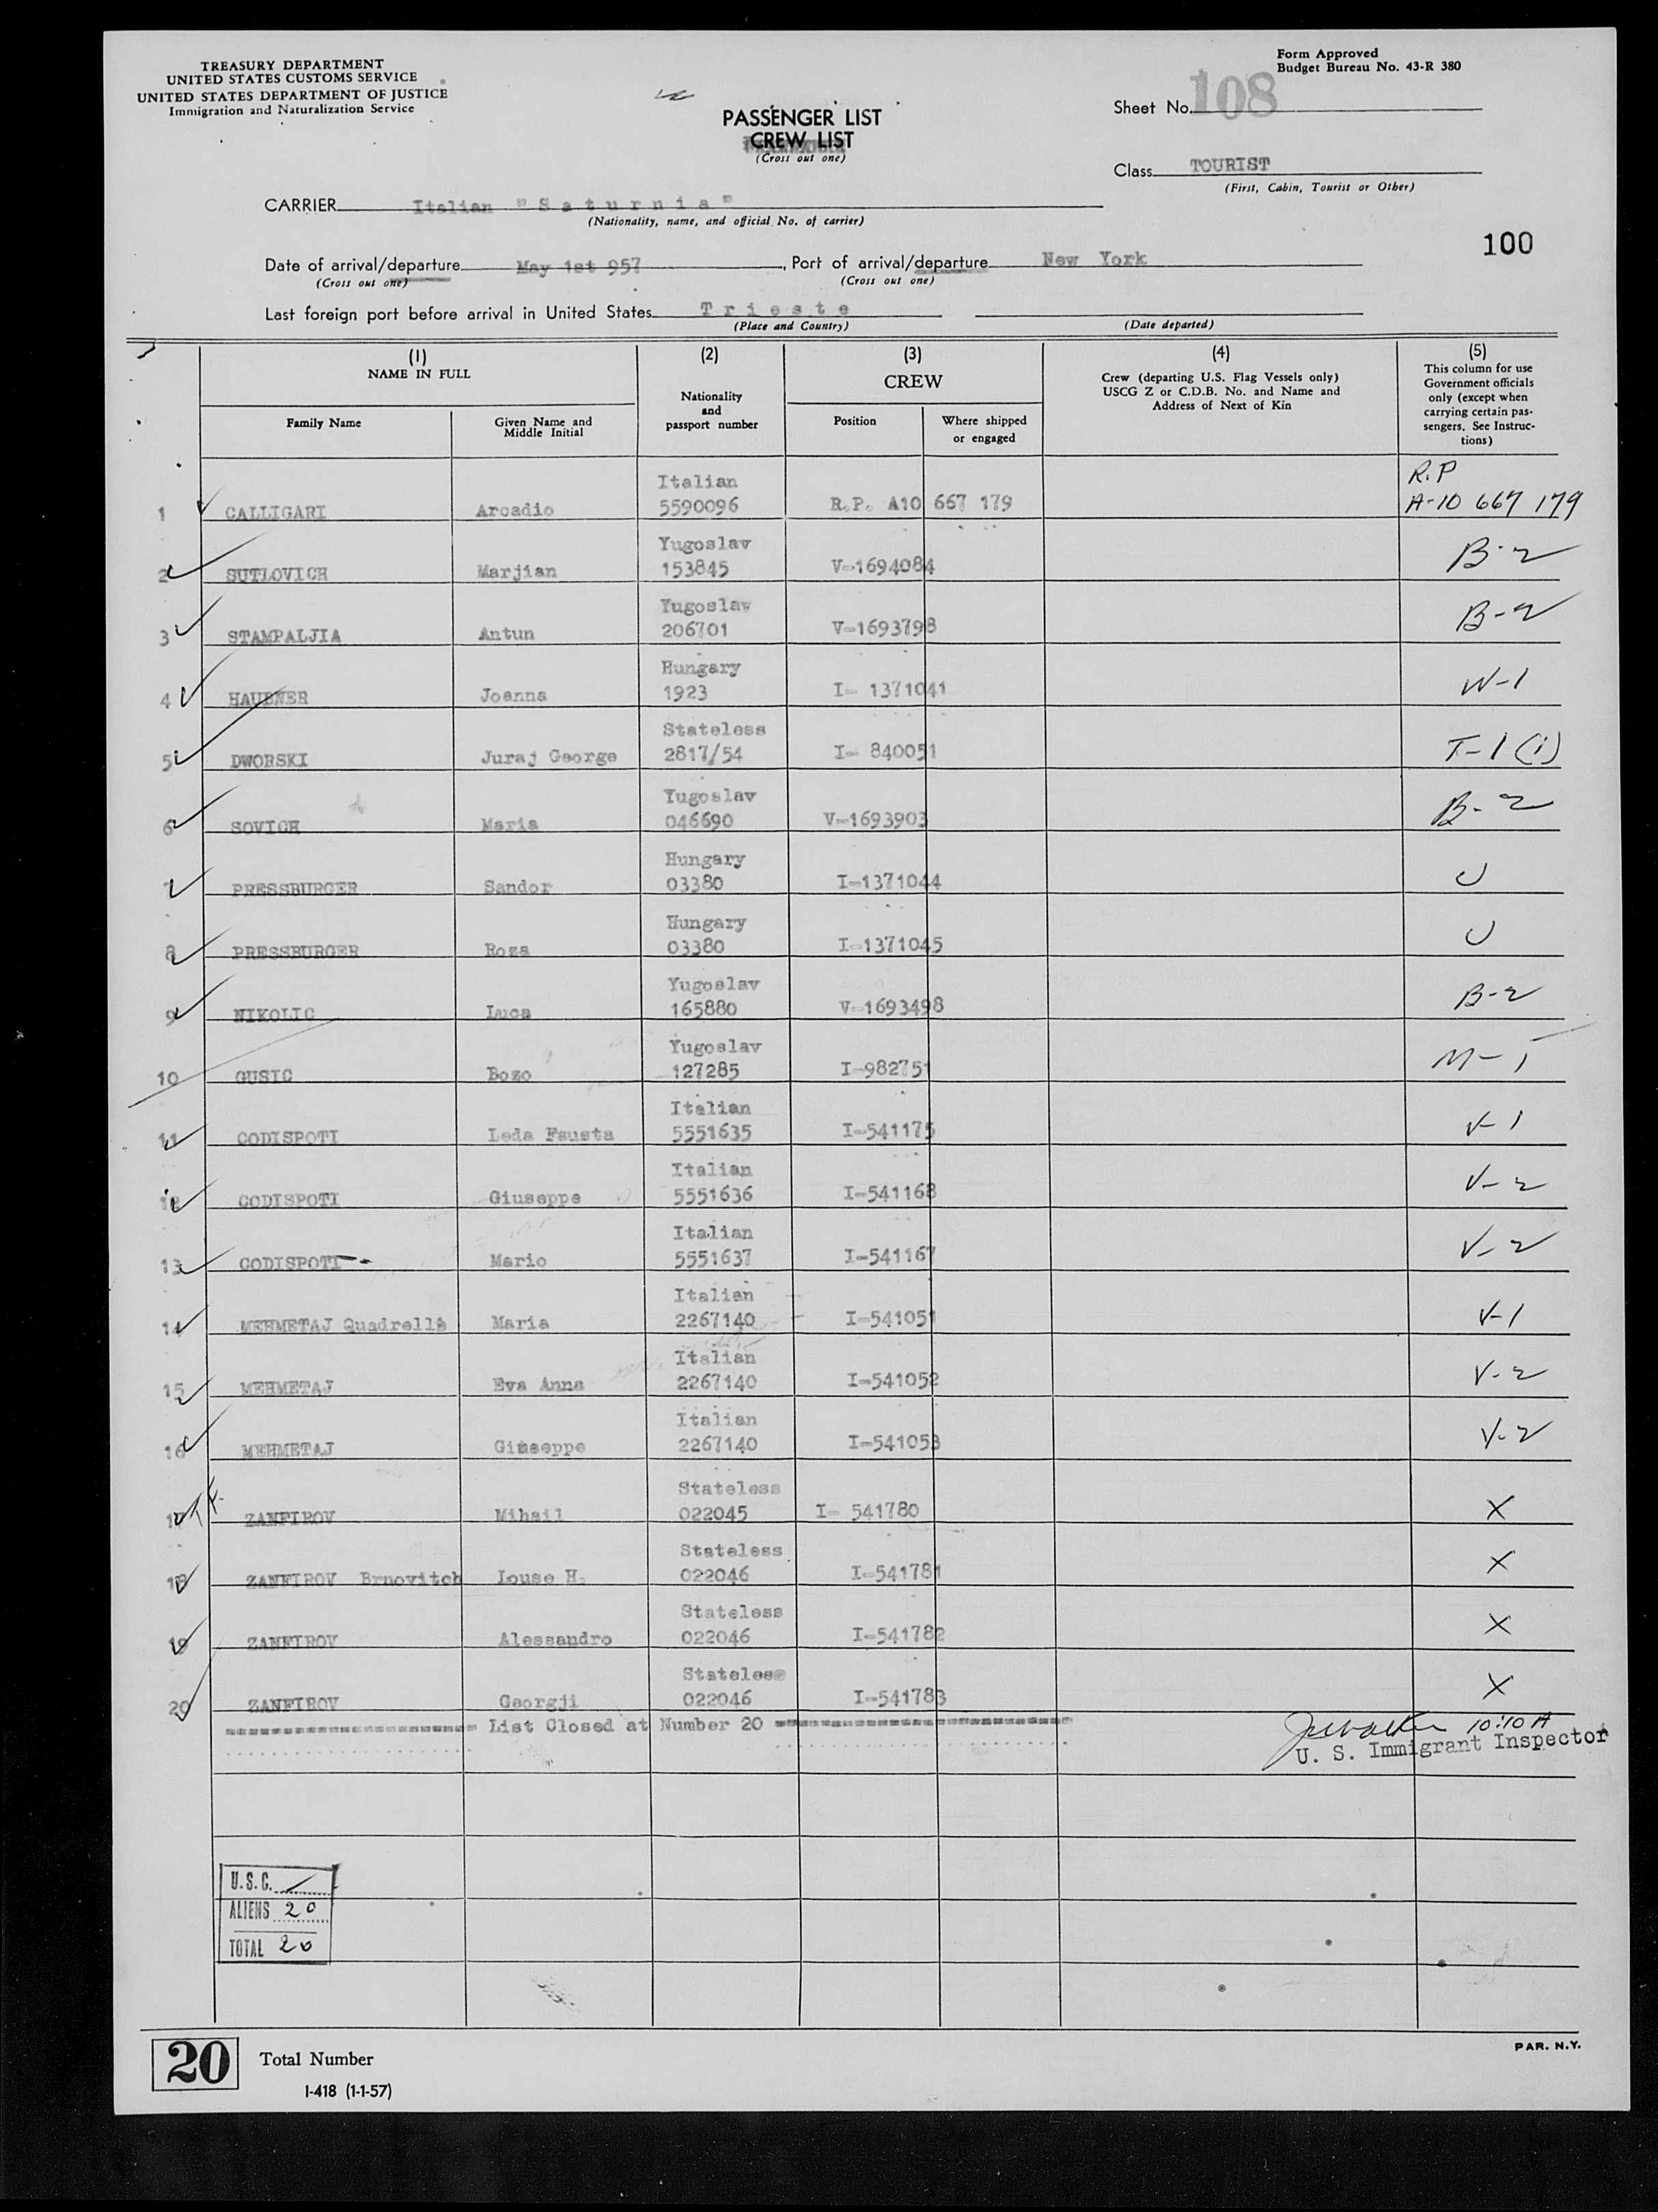 TREASURY DEPARTMENT
UNITED STATES CUSTOMS SERVICE
UNITED STATES DEPARTMENT OF JUSTICE
Immigration and Naturalization Service
Form Approved
Budget Bureau No. 43-R 380
PASSENGER LIST
CREW LIST
(Cross out one)
Sheet No. 108
Class TOURIST
(First, Cabin, Tourist or Other)
CARRIER Italian "Saturnia"
(Nationality, name, and official No. of carrier)
100
Date of arrival/departure May 1st 957, Port of arrival/departure New York
(Cross out one) (Cross out one)
Last foreign port before arrival in United States Trieste
(Place and Country) (Date departed)
(1) (2) (3) (4) (5)
NAME IN FULL
Nationality and passport number
CREW
Crew (departing U.S. Flag Vessels only)
USCG Z or C.D.B. No. and Name and
Address of Next of Kin
This column for use
Government officials
only (except when
carrying certain pas-
sengers. See Instruc-
tions)
Family Name Given Name and Middle Initial Position Where shipped or engaged
Italian R.P
1 CALLIGARI Arcadio 5590096 R.P. A10 667 179 A-10 667 179
Yugoslav
2 SUTLOVICH Marjian 153845 V-1694084 B-2
Yugoslav
3 STAMPALJIA Antun 206701 V-1693798 B-2
Hungary
4 HAUBNER Joanna 1923 I- 1371041 W-1
Stateless
5 DWORSKI Juraj George 2817/54 I- 840051 T-1(1)
Yugoslav
6 SOVICH Maria 046690 V-1693903 B-2
Hungary
7 PRESSBURGER Sandor 03380 I-1371044 U
Hungary
8 PRESSBURGER Roza 03380 I-1371045 U
Yugoslav
9 NIKOLIC Luca 165880 V-1693498 B-2
Yugoslav
10 GUSIC Bozo 127285 I-982751 M-1
Italian
11 CODISPOTI Leda Fausta 5551635 I-541175 V-1
Italian
12 CODISPOTI Giuseppe 5551636 I-541168 V-2
Italian
13 CODISPOTI Mario 5551637 I-541167 V-2
Italian
14 MEHMETAJ Quadrella Maria 2267140 I-541051 V-1
Italian
15 MEHMETAJ Eva Anna 2267140 I-541052 V-2
Italian
16 MEHMETAJ Giuseppe 2267140 I-541053 V-2
Stateless
17 ZANFIROV Mihail 022045 I- 541780 X
Stateless
18 ZANFIROV Brnovitch Iouse H. 022046 I-541781 X
Stateless
19 ZANFIROV Alessandro 022046 I-541782 X
Stateless
20 ZANFIROV Georgji 022046 I-541783 X
List Closed at Number 20
10:10 A
U. S. Immigrant Inspector
U.S.C.
ALIENS 20
TOTAL 20
20 Total Number
I-418 (1-1-57)
PAR. N.Y.